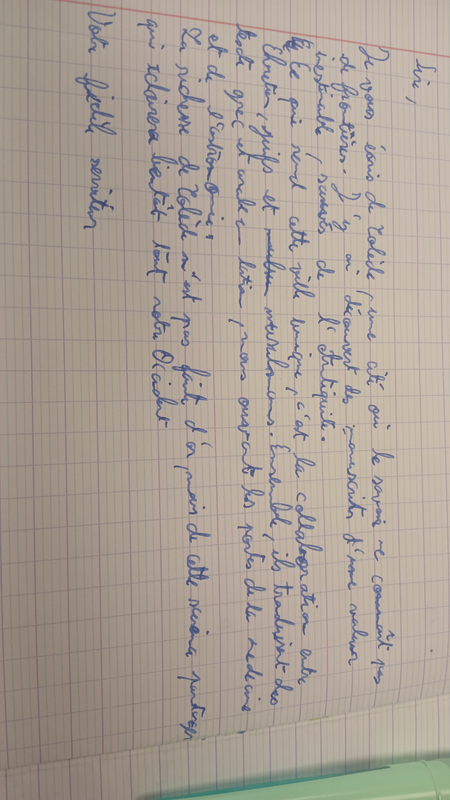 Sire,
Je vous écris de Tolède, une cité où le savoir ne connaît pas
de frontières. J'y ai découvert des manuscrits d'une valeur
inestimable, sauvés de l'Antiquité.
Ce qui rend cette ville unique, c'est la collaboration entre
Chrétiens, juifs et musulmans. Ensemble, ils traduisent des
texte grec et arabe en latin, nous ouvrant les portes de la médecine
et de l'astronomie.
La richesse de Tolède n'est pas faite d'or, mais de cette science partagée
qui éclairera bientôt tout notre Occident
Votre fidèle serviteur